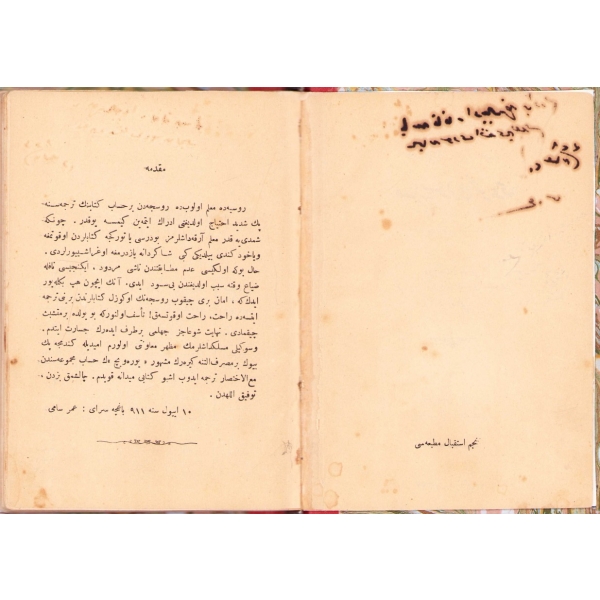 مقدمه
روسیه‌ده معلم اولوب‌ده روسجه‌دن برحساب کتابنك ترجمه‌سنه
پك شدید احتیاج اولدیغنی ادراك ایتمه‌ین کیمسه یوقدر . چونکه
شمدی‌یه قدر معلم آرقه‌داشلرمز بودرسی یا تورکجه کتابلردن اوقوتمغه
ویاخود کندی بیلدیکی کبی شاکردانه یازدرمغه اوغراشییورلردی .
حال بوکه اولکیسی عدم مضایقتندن ناشی مردود . ایکنجیسی نافله
ضیاع وقته سبب اولدیغندن بی‌سود ایدی . آنك ایچون هپ بکله‌یور
ایدك که ، امان بری چیقوب روسجه‌نك اوکوزل کتابلرندن برینی ترجمه
ایتسه‌ده راحت ، راحت اوقوتسه‌ق! تأسف اولنورکه بو یولده برمتشبث
چیقمادی . نهایت شوعاجز جهلمی برطرف ایده‌رك جسارت ایتدم .
وسوکیلی مسلکداشلرمك مظهر معاونتی اولورم امیدیله کندمجه پك
بیوك برمصرف التنه کیره‌رك مشهور ه یوره‌ویچ ه‌ك حساب مجموعه‌سندن
مع‌الاختصار ترجمه ایدوب اشبو کتابی میدانه قویدم . چالشمق بزدن ،
توفیق اللهدن .
١٠ ایپول سنه ٩١١ باغچه سرای : عمر سامی
نجم استقبال مطبعه‌سی